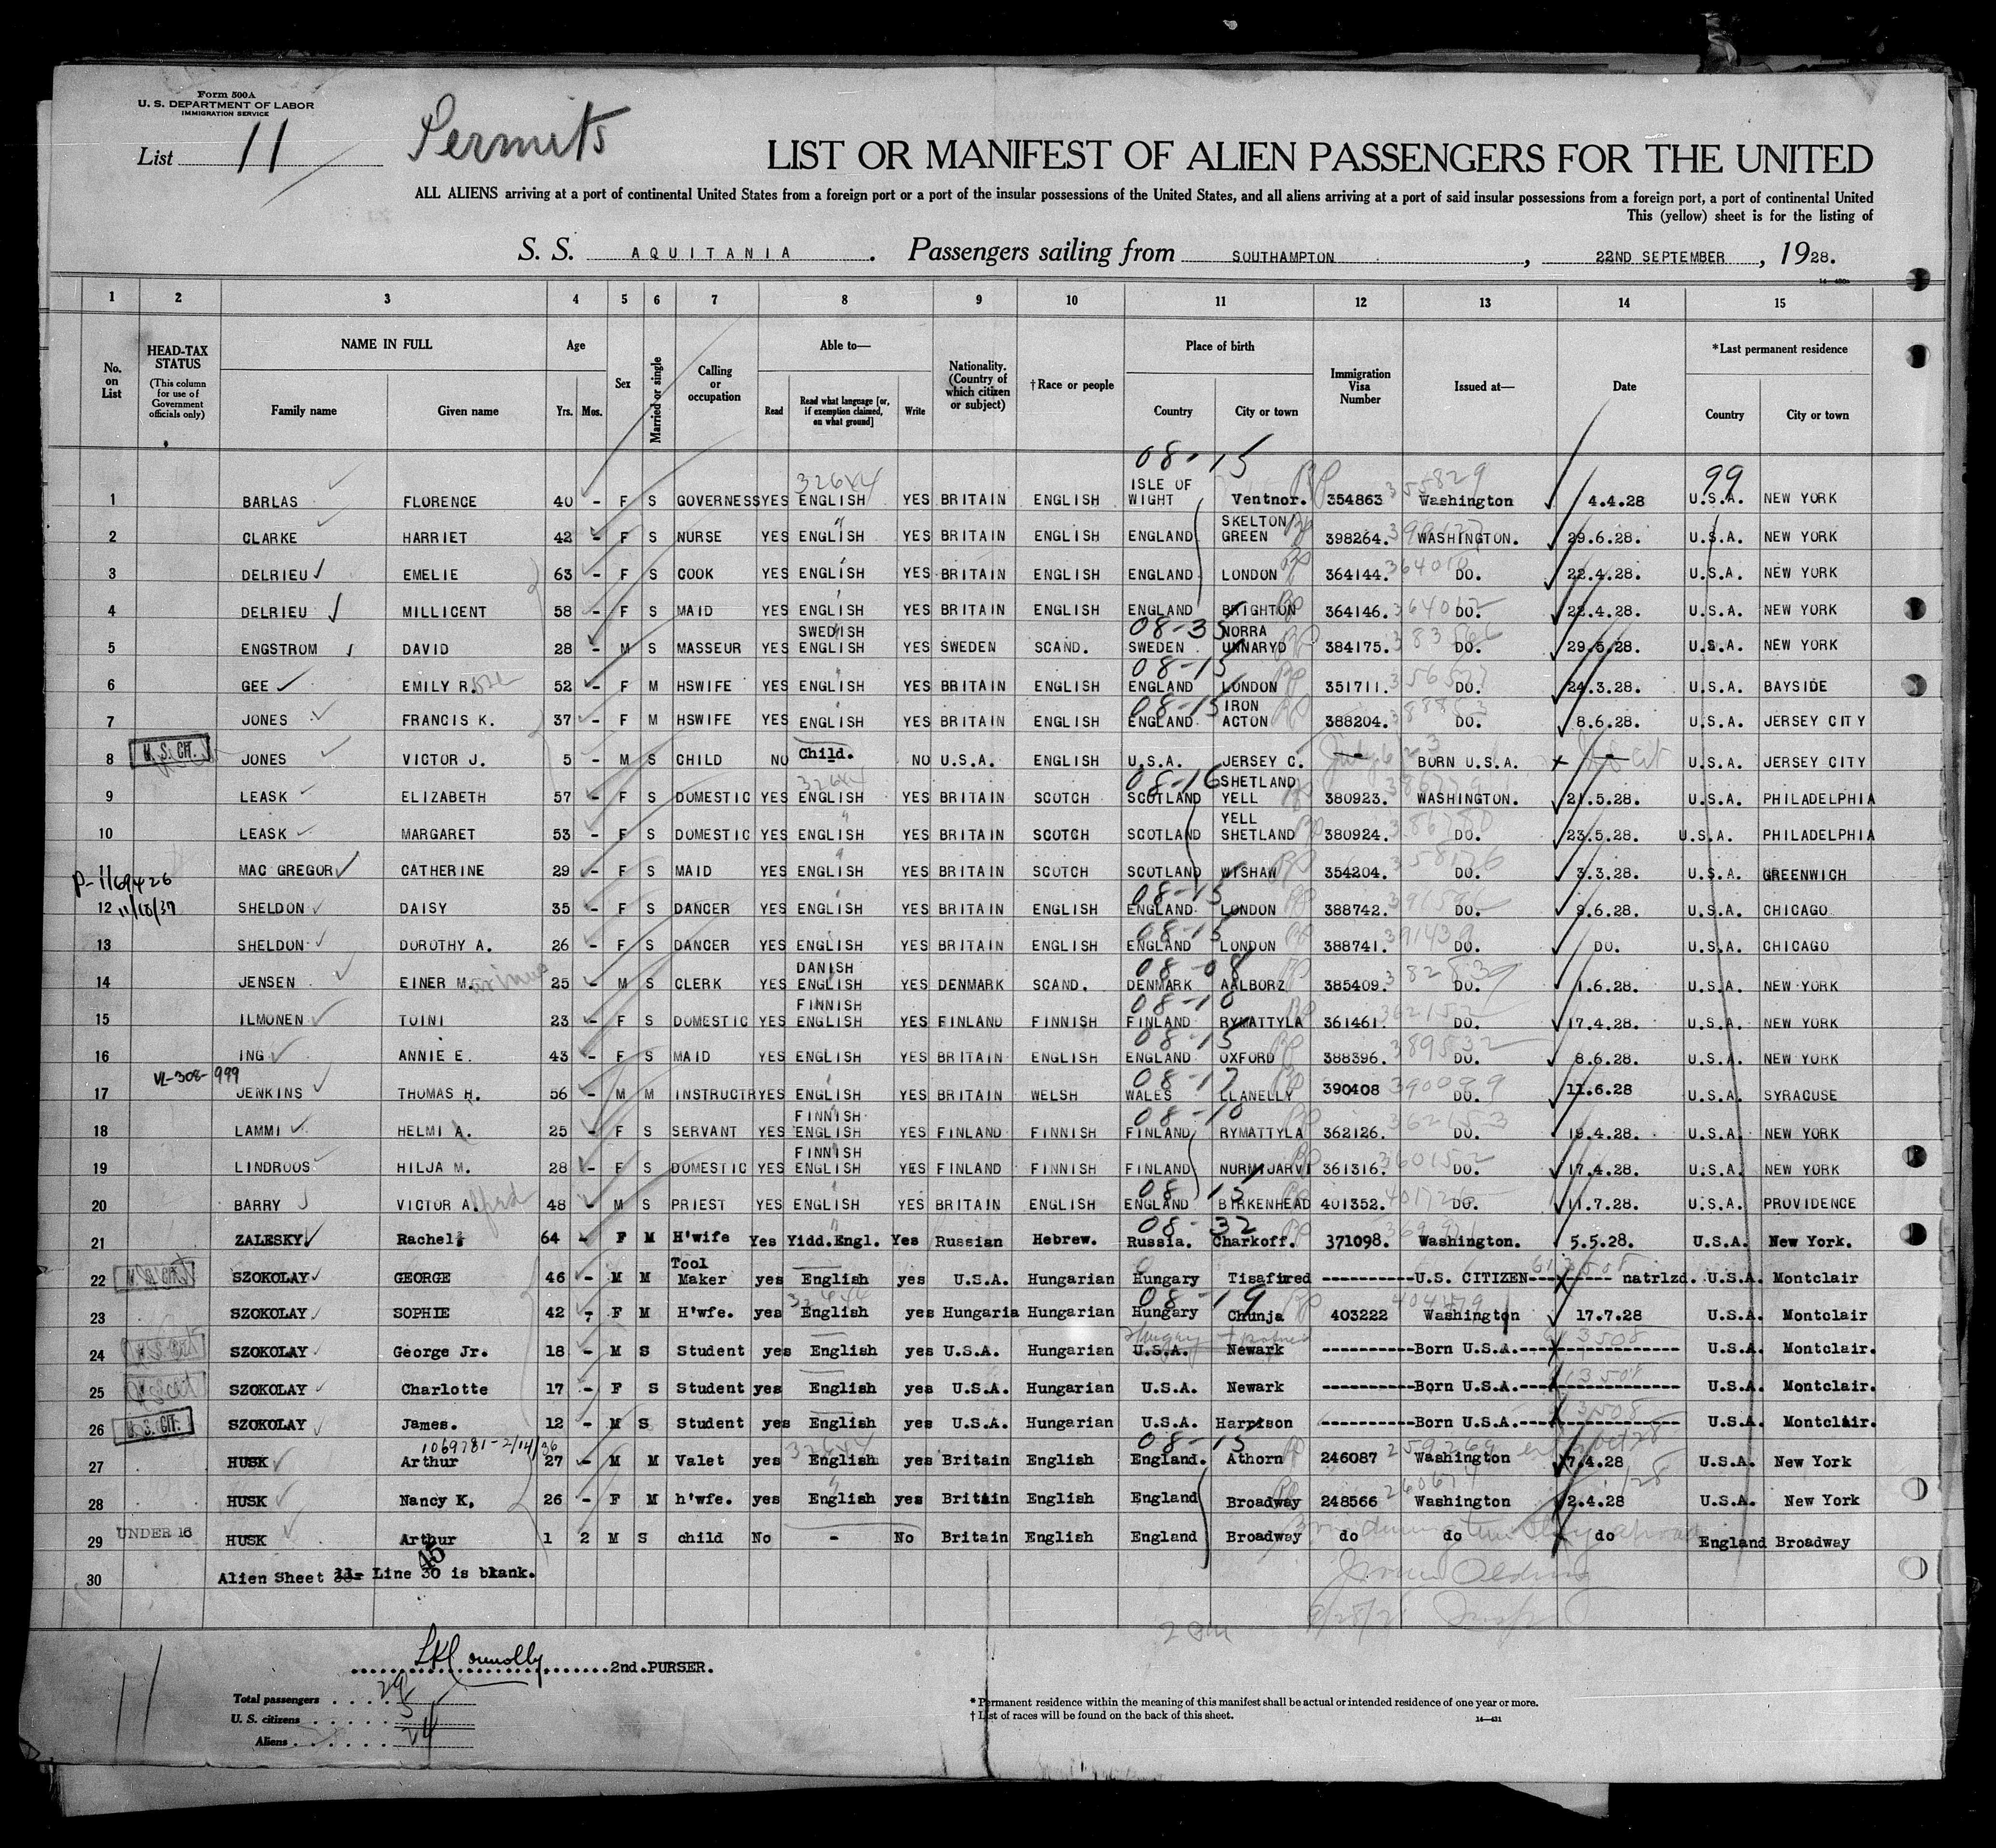 Form 500A
U. S. DEPARTMENT OF LABOR
IMMIGRATION SERVICE
List 11
Permits
LIST OR MANIFEST OF ALIEN PASSENGERS FOR THE UNITED
ALL ALIENS arriving at a port of continental United States from a foreign port or a port of the insular possessions of the United States, and all aliens arriving at a port of said insular possessions from a foreign port, a port of continental United
This (yellow) sheet is for the listing of
S. S. AQUITANIA. Passengers sailing from SOUTHAMPTON, 22ND SEPTEMBER, 1928.
1 2 3 4 5 6 7 8 9 10 11 12 13 14 15
No. on List
HEAD-TAX STATUS (This column for use of Government officials only)
NAME IN FULL Family name Given name
Age Yrs. Mos.
Sex
Married or single
Calling or occupation
Able to— Read Read what language [or, if exemption claimed, on what ground] Write
Nationality. (Country of which citizen or subject)
†Race or people
Place of birth Country City or town
Immigration Visa Number
Issued at—
Date
*Last permanent residence Country City or town
08-15 99
1 BARLAS FLORENCE 40 - F S GOVERNESS YES ENGLISH YES BRITAIN ENGLISH ISLE OF WIGHT Ventnor. 354863 355829 Washington 4.4.28 U.S.A. NEW YORK
2 CLARKE HARRIET 42 - F S NURSE YES ENGLISH YES BRITAIN ENGLISH ENGLAND SKELTON GREEN 398264. WASHINGTON. 29.6.28. U.S.A. NEW YORK
3 DELRIEU EMELIE 63 - F S COOK YES ENGLISH YES BRITAIN ENGLISH ENGLAND LONDON 364144. DO. 22.4.28. U.S.A. NEW YORK
4 DELRIEU MILLICENT 58 - F S MAID YES ENGLISH YES BRITAIN ENGLISH ENGLAND BRIGHTON 364146. DO. 22.4.28. U.S.A. NEW YORK
08-35
5 ENGSTROM DAVID 28 - M S MASSEUR YES SWEDISH ENGLISH YES SWEDEN SCAND. SWEDEN NORRA UNNARYD 384175. DO. 29.5.28. U.S.A. NEW YORK
08-15
6 GEE EMILY R. 52 - F M HSWIFE YES ENGLISH YES BRITAIN ENGLISH ENGLAND LONDON 351711. DO. 24.3.28. U.S.A. BAYSIDE
08-15
7 JONES FRANCIS K. 37 - F M HSWIFE YES ENGLISH YES BRITAIN ENGLISH ENGLAND IRON ACTON 388204. DO. 8.6.28. U.S.A. JERSEY CITY
U.S. CIT.
8 JONES VICTOR J. 5 - M S CHILD NO Child. NO U.S.A. ENGLISH U.S.A. JERSEY C. - BORN U.S.A. - U.S.A. JERSEY CITY
08-16
9 LEASK ELIZABETH 57 - F S DOMESTIC YES ENGLISH YES BRITAIN SCOTCH SCOTLAND SHETLAND YELL 380923. WASHINGTON. 21.5.28. U.S.A. PHILADELPHIA
10 LEASK MARGARET 53 - F S DOMESTIC YES ENGLISH YES BRITAIN SCOTCH SCOTLAND YELL SHETLAND 380924. 386780 DO. 23.5.28. U.S.A. PHILADELPHIA
11 MAC GREGOR CATHERINE 29 - F S MAID YES ENGLISH YES BRITAIN SCOTCH SCOTLAND WISHAW 354204. DO. 3.3.28. U.S.A. GREENWICH
P-1169426 11/10/37
08-15
12 SHELDON DAISY 35 - F S DANCER YES ENGLISH YES BRITAIN ENGLISH ENGLAND LONDON 388742. DO. 9.6.28. U.S.A. CHICAGO
08-15
13 SHELDON DOROTHY A. 26 - F S DANCER YES ENGLISH YES BRITAIN ENGLISH ENGLAND LONDON 388741. 391439 DO. DO. U.S.A. CHICAGO
08-08
14 JENSEN EINER M. 25 - M S CLERK YES DANISH ENGLISH YES DENMARK SCAND. DENMARK AALBORZ 385409. DO. 1.6.28. U.S.A. NEW YORK
08-10
15 ILMONEN TOINI 23 - F S DOMESTIC YES FINNISH ENGLISH YES FINLAND FINNISH FINLAND RYMATTYLA 361461. 362152 DO. 17.4.28. U.S.A. NEW YORK
08-15
16 ING ANNIE E. 43 - F S MAID YES ENGLISH YES BRITAIN ENGLISH ENGLAND OXFORD 388396. 389532 DO. 8.6.28. U.S.A. NEW YORK
VL-308-999
08-17
17 JENKINS THOMAS H. 56 - M M INSTRUCTR YES ENGLISH YES BRITAIN WELSH WALES LLANELLY 390408 DO. 11.6.28 U.S.A. SYRACUSE
08-10
18 LAMMI HELMI A. 25 - F S SERVANT YES FINNISH ENGLISH YES FINLAND FINNISH FINLAND RYMATTYLA 362126. 362153 DO. 19.4.28. U.S.A. NEW YORK
19 LINDROOS HILJA M. 28 - F S DOMESTIC YES FINNISH ENGLISH YES FINLAND FINNISH FINLAND NURMIJARVI 361316. 360152 DO. 17.4.28. U.S.A. NEW YORK
08-15
20 BARRY VICTOR A. 48 - M S PRIEST YES ENGLISH YES BRITAIN ENGLISH ENGLAND BIRKENHEAD 401352. DO. 11.7.28. U.S.A. PROVIDENCE
08-32
21 ZALESKY Rachel 64 - F M H'wife Yes Yidd.Engl. Yes Russian Hebrew. Russia. Charkoff. 371098. Washington. 5.5.28. U.S.A. New York.
22 SZOKOLAY GEORGE 46 - M M Tool Maker yes English yes U.S.A. Hungarian Hungary Tisafired ----------U.S. CITIZEN---------- natrlzd. U.S.A. Montclair
08-19
23 SZOKOLAY SOPHIE 42 - F M H'wfe. yes English yes Hungaria Hungarian Hungary Chunja 403222 Washington 17.7.28 U.S.A. Montclair
24 SZOKOLAY George Jr. 18 - M S Student yes English yes U.S.A. Hungarian U.S.A. Newark ----------Born U.S.A.---------------- U.S.A. Montclair.
25 SZOKOLAY Charlotte 17 - F S Student yes English yes U.S.A. Hungarian U.S.A. Newark ----------Born U.S.A.---------------- U.S.A. Montclair.
U.S. CIT.
26 SZOKOLAY James. 12 - M S Student yes English yes U.S.A. Hungarian U.S.A. Harrison ----------Born U.S.A.---------------- U.S.A. Montclair.
1069781-2/14/36
08-15
27 HUSK Arthur 27 - M M Valet yes English yes Britain English England. Athorn 246087 Washington 7.4.28 U.S.A. New York
28 HUSK Nancy K, 26 - F M h'wfe. yes English yes Britain English England Broadway 248566 Washington 2.4.28 U.S.A. New York
UNDER 16
29 HUSK Arthur 1 2 M S child No - No Britain English England Broadway do do do England Broadway
30 Alien Sheet 11- Line 30 is blank.
45
2nd.PURSER.
11
Total passengers 29
U. S. citizens 5
Aliens 24
* Permanent residence within the meaning of this manifest shall be actual or intended residence of one year or more.
† List of races will be found on the back of this sheet.
14—431